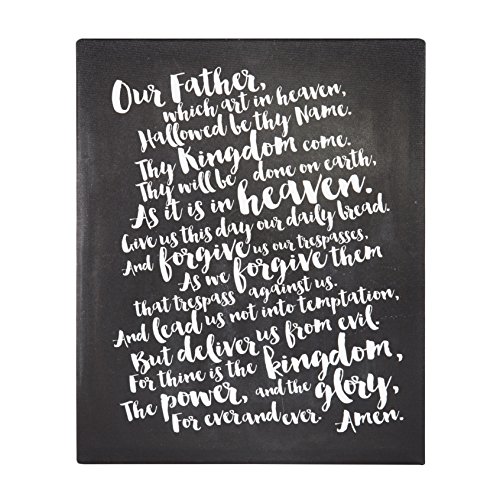 Our Father,
which art in heaven,
Hallowed be thy Name.
Thy Kingdom come.
Thy will be done on earth,
As it is in heaven.
Give us this day our daily bread.
And forgive us our trespasses,
As we forgive them
that trespass against us.
And lead us not into temptation,
But deliver us from evil
For thine is the kingdom,
The power, and the glory,
For ever and ever. Amen.